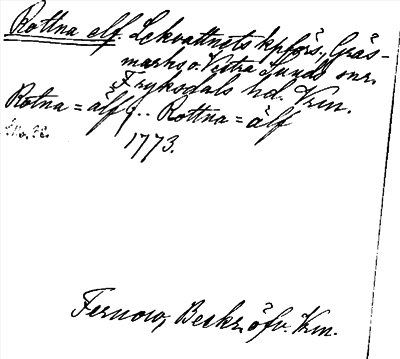 Rottna elf. Lekvattnets kpförs., Gräs-
marks o. Vestra Sunds snr.
Fryksdals hd. Vrm.
Rotna = älf ... Rottna = älf
1773.
Fernow, Beskr. öfv. Vrm.